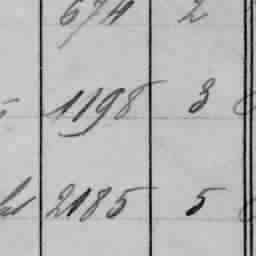 674 2
1198 3
2185 5